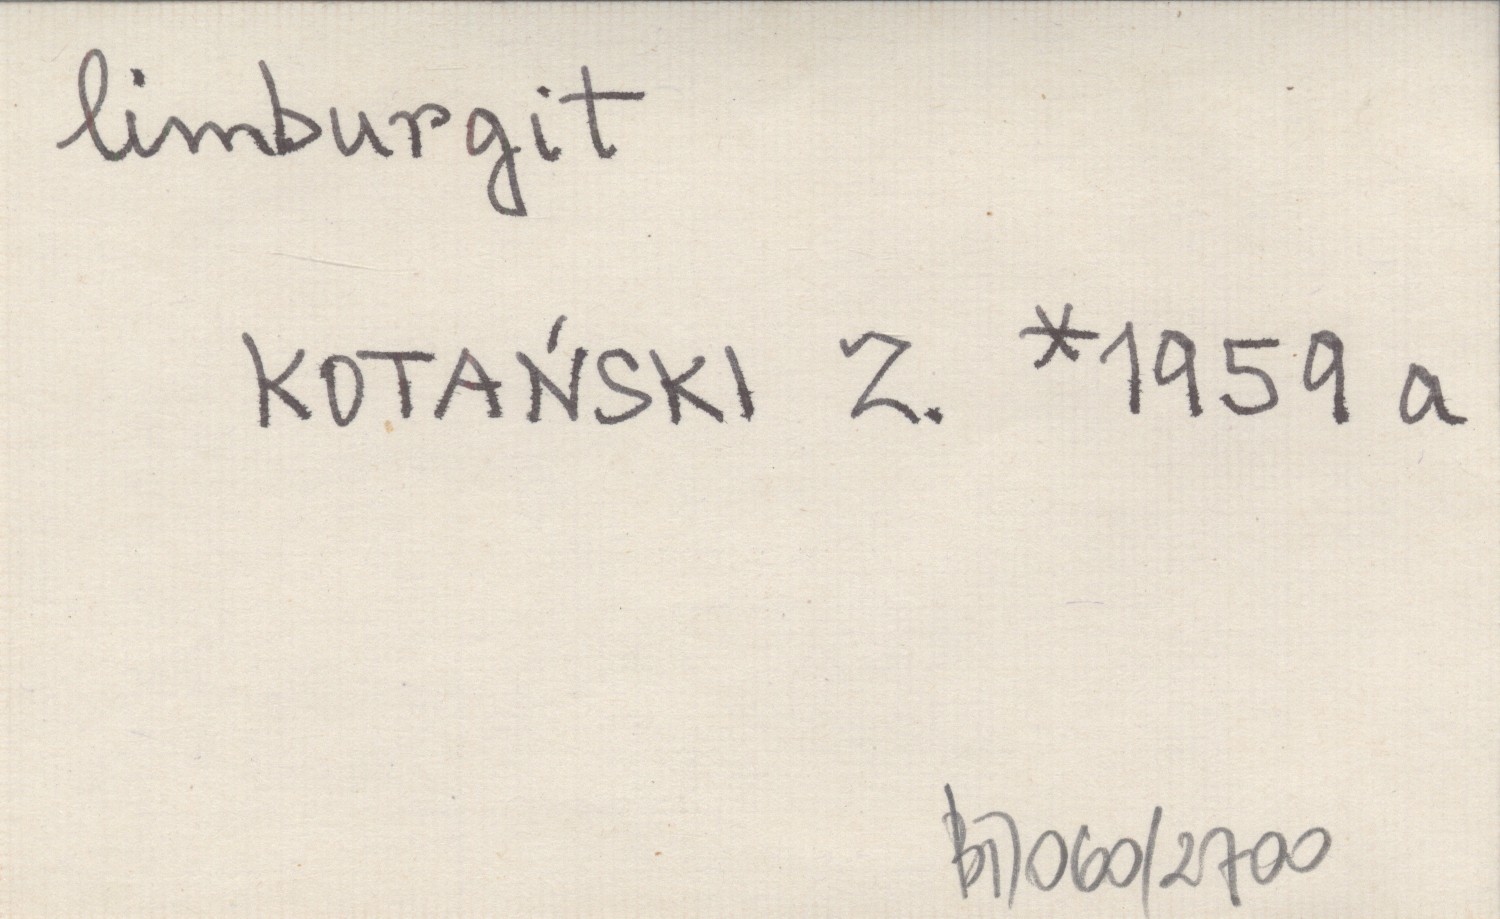 limburgit
KOTAŃSKI Z. *1959 a
060/2700